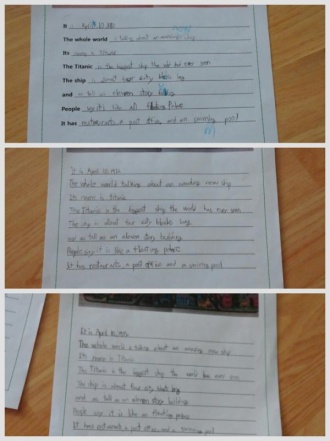 It is April 10, 1912
new
The whole world is talking about an amazing ship
Its name is Titanic
The Titanic is the biggest ship the world has ever seen
The ship is about four city blocks long
and as tall as an eleven story building
People say it's like a floating palace
It has restaurants a post office and an swimming pool
It is April 10, 1912.
The whole world talking about an amazing new ship
Its name is Titanic
The Titanic is the biggest ship the world has ever seen
The ship is about four city blocks long
and as tall as an eleven story building
People say it is like a floating palace
It has restaurants a post office and a swimming pool
It is April 10, 1912
The whole world is talking about an amazing new ship
Its name is Titanic
The Titanic is the biggest ship the world has ever seen
The ship is about four city blocks long
and as tall as an eleven story building
People say it is like an floating palace
It has restaurants a post office and a swimming pool